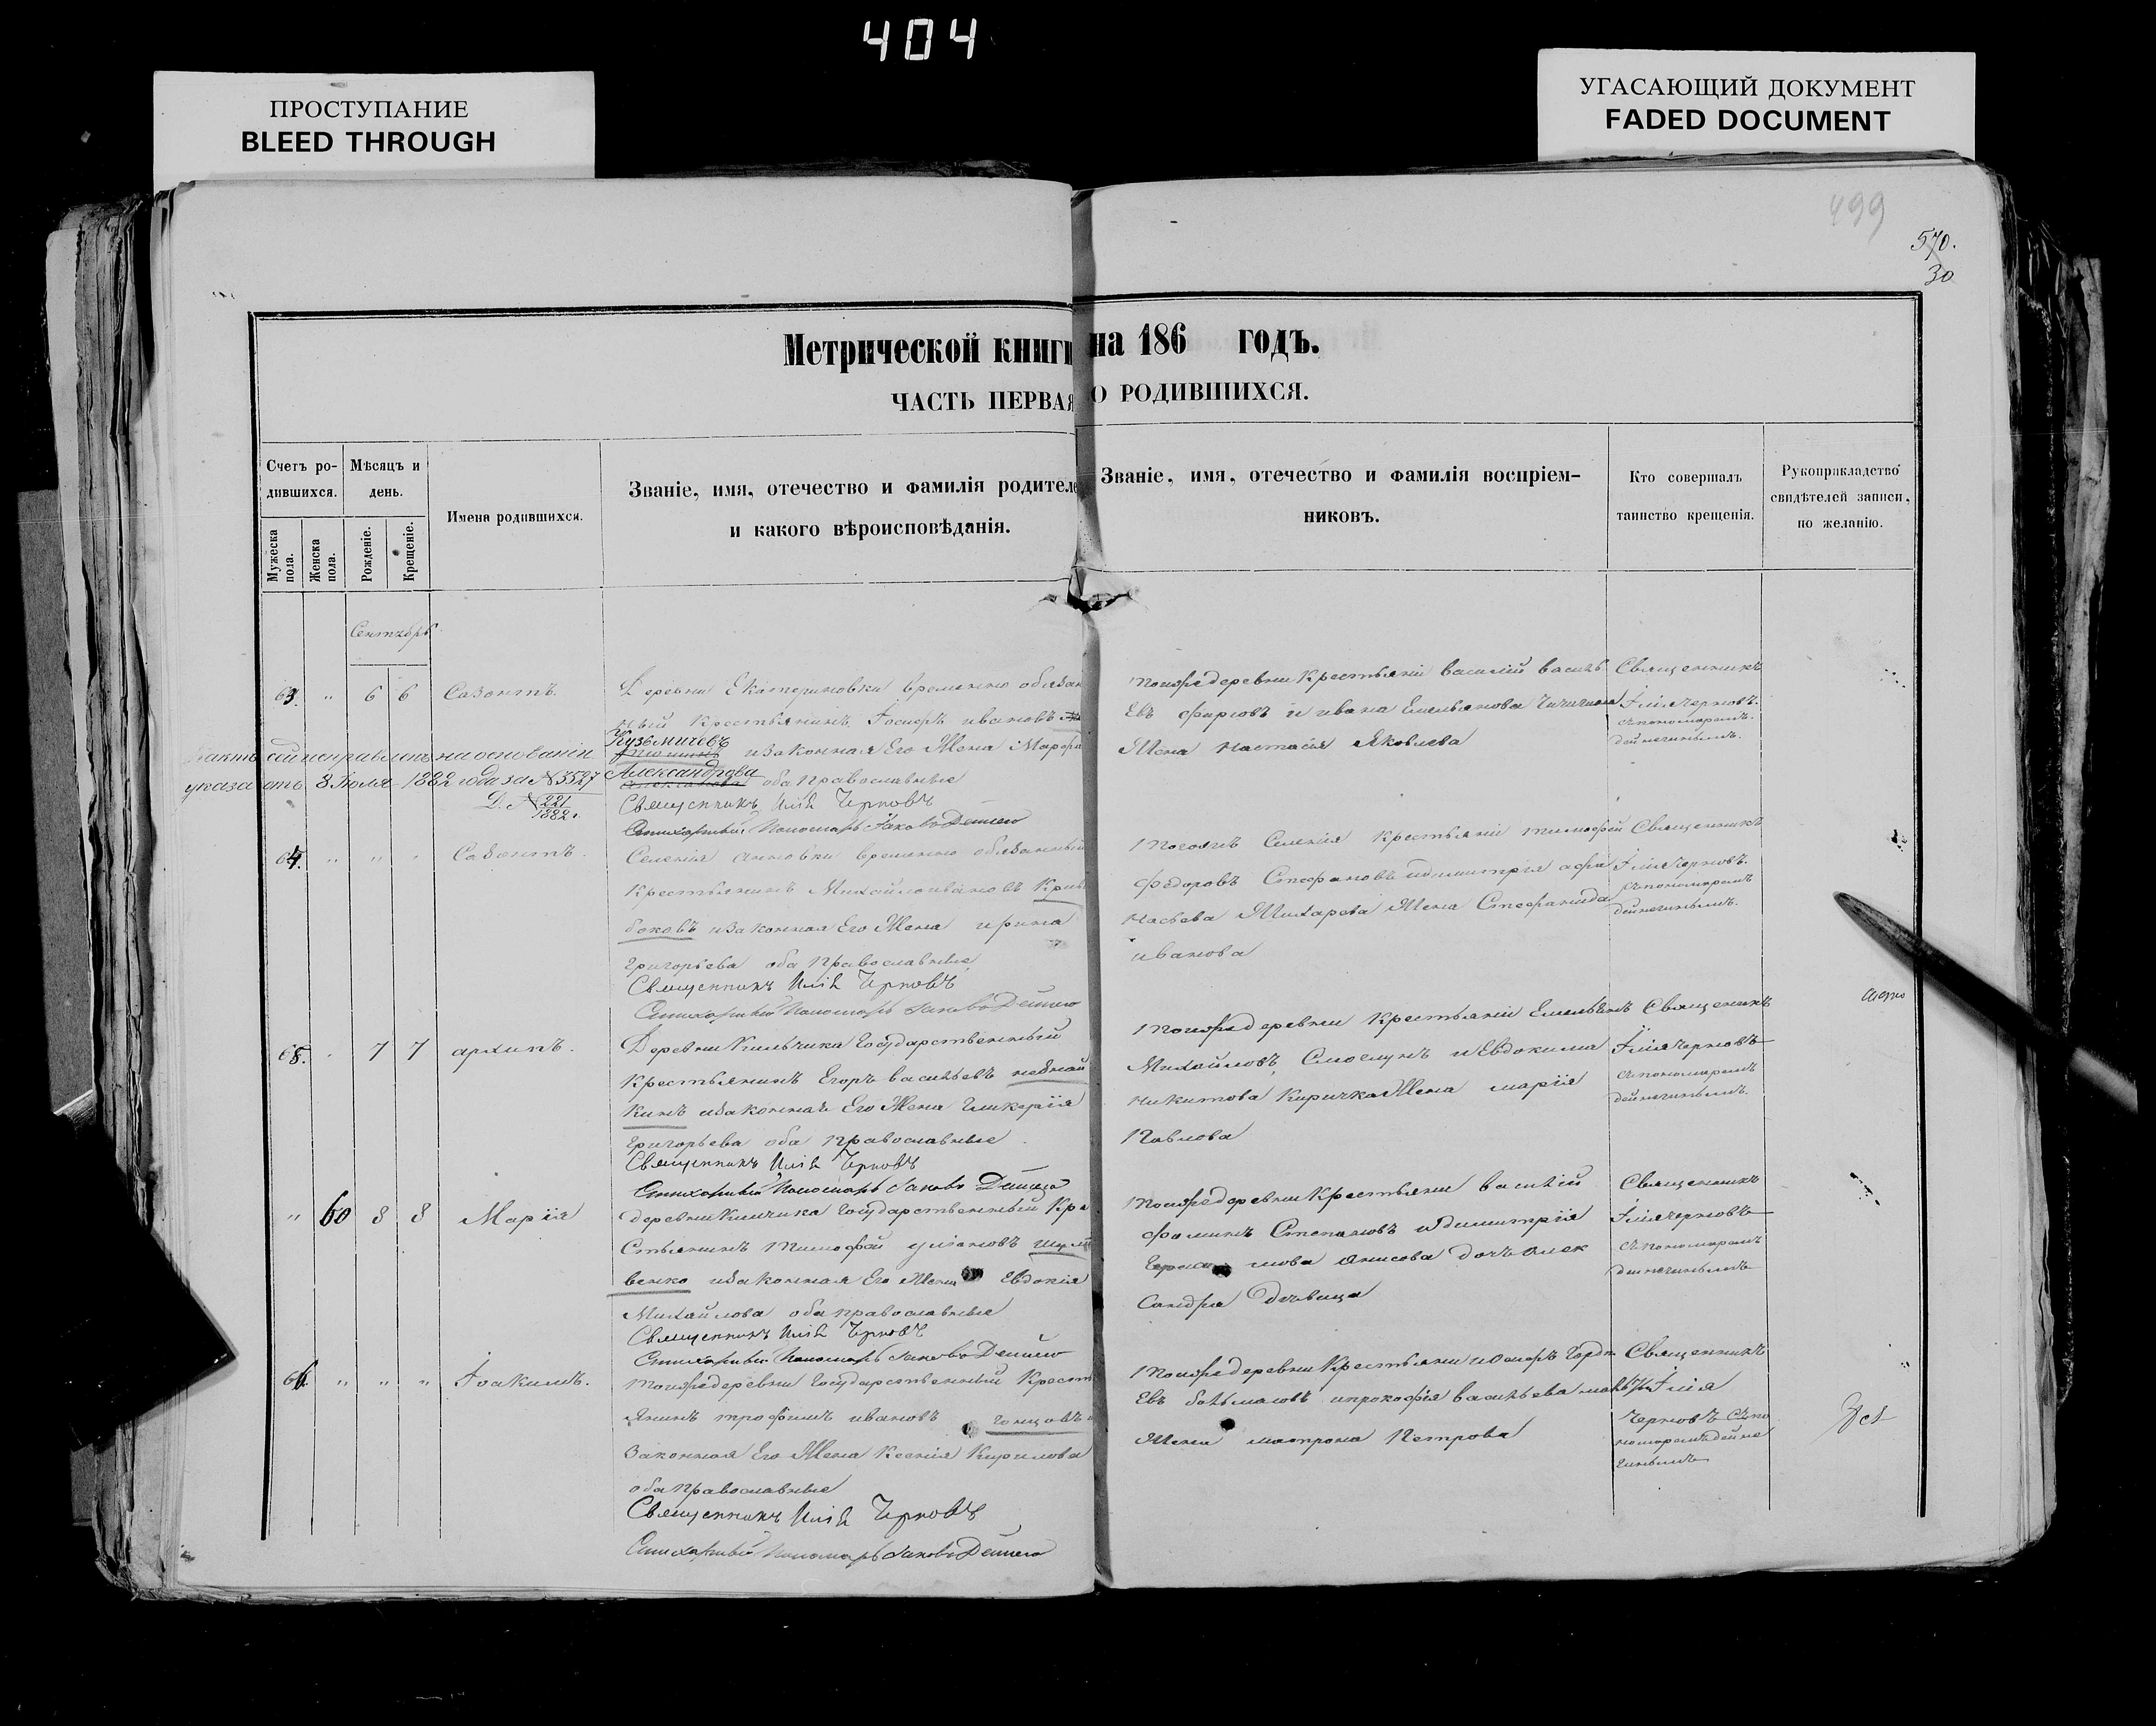 404
ПРОСТУПАНИЕ
BLEED THROUGH
УГАСАЮЩИЙ ДОКУМЕНТ
FADED DOCUMENT
499
570.
30
Метрической книги на 186 годъ.
ЧАСТЬ ПЕРВАЯ О РОДИВШИХСЯ.
Счетъ ро-
дившихся.
Мужеска пола.
Женска пола.
Мѣсяцъ и
день.
Рожденіе.
Крещеніе.
Имена родившихся.
Званіе, имя, отечество и фамилія родителе
и какого вѣроисповѣданія.
Званіе, имя, отечество и фамилія воспріем-
никовъ.
Кто совершалъ
таинство крещенія.
Рукоприкладство
свидѣтелей записи,
по желанію.
Сентябрь
63. " 6 6 Созонтъ
Деревни Екатериновки временно обязан
ный Крестьянинъ Іосифъ ивановъ
Кузьмичевъ изаконная Его Жена Марфа
Александрова оба Православные
Священникъ Илія Черновъ
Стихарный Пономарь Іаковъ
тойже деревни Крестьяніи василій василь
Евъ Фирсовъ и ивана Емельянова
Жена настасія Яковлева
Священникъ
Іліячерновъ.
съпономаремъ.
Актъ сей исправленъ на основаніи
указа отъ 8 Іюля 1882 года за № 3527
Д. № 221
1882 г.
64. " " " Созонтъ.
Селенія анновки временно обязанный
Крестьянинъ Михайло ивановъ Криво
боковъ изаконная Его Жена ирина
григорьева оба Православные
Священникъ Илія Черновъ
Стихарный Пономарь Іаковъ
Тогожъ Селенія Крестьяніи тимофей
Федоровъ Стефановъ идимитрія афа
насьева Жена Стефанида
иванова
Священникъ
Іліячерновъ.
съпономаремъ
65. " 7 7 архипъ.
Деревни Кильчика Государственный
Крестьянинъ Егоръ васильевъ
кинъ изаконная Его Жена Гликерія
григорьева оба Православные
Священникъ Илія Черновъ
Стихарный Пономарь Іаковъ
тойже деревни Крестьяніи Емельянъ
Михайловъ и Евдокима
никитова Киричка Жена марія
Павлова
Священникъ
Іліячерновъ
съпономаремъ
" 60 8 8 Марія
деревни Кильчика Государственный Кре
стьянинъ Тимофей
венко изаконная Его Жена Евдокія
Михайлова оба православные
Священникъ Илія Черновъ
Стихарный Пономарь Іаковъ
тойже деревни Крестьяни василій
фоминъ Степановъ идимитрія
анисова дочь алек
сандра дѣвица
Священникъ
Іліячерновъ
съпономаремъ
66. " " " Іоакимъ.
тойже деревни Государственный Крест
янинъ трофимъ ивановъ
Законная Его Жена Ксенія Кирилова
оба православные
Священникъ Илія Черновъ
Стихарный Пономарь Іаковъ
тойже деревни Крестьяни иосифъ
Евъ ипрокофія васильева
Жена матрона Петрова
Священникъ
Ілія
Черновъ съпо
номаремъ